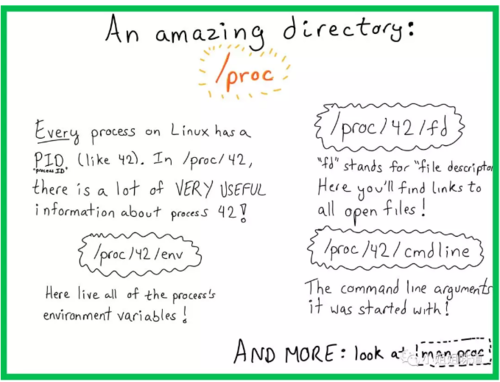 An amazing directory:
/proc
Every process on Linux has a
PID (like 42). In /proc/42,
"process ID"
there is a lot of VERY USEFUL
information about process 42!
/proc/42/env
Here live all of the process's
environment variables!
/proc/42/fd
"fd" stands for "file descriptor
Here you'll find links to
all open files!
/proc/42/cmdline
The command line arguments
it was started with!
AND MORE: look a' man proc